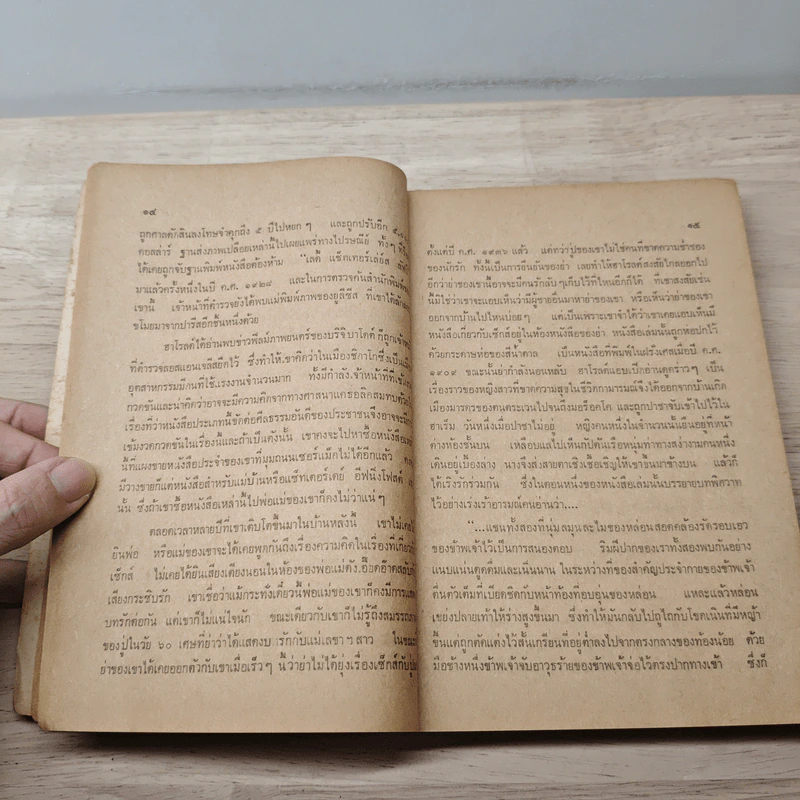 ๑๔
ถูกศาลตัดสินลงโทษจำคุกถึง ๕ ปีไปหยก ๆ และถูกปรับอีก
ดอลล่าร์ ฐานส่งภาพเปลือยเหล่านี้ไปเผยแพร่ทางไปรษณีย์ ทั้งๆ ที่
ได้เคยถูกจับฐานพิมพ์หนังสือต้องห้าม "เลดี้ แช็ตเทอร์เล่ย์ส
มาแล้วครั้งหนึ่งในปี ค.ศ. ๑๙๒๘ และในการตรวจค้นสำนักพิมพ์
เขานี้ เจ้าหน้าที่ตำรวจยังได้พบแม่พิมพ์ภาพของยูลีซิส ที่เขาได้
ขโมยมาจากปารีสอีกชิ้นหนึ่งด้วย
ฮาโรลด์ได้อ่านพบข่าวฟิล์มภาพยนตร์ของบริจิบาโดต์ ก็ถูกเจ้า
ที่ตำรวจลอสแอนเจลลีสยึดไว้ ซึ่งทำให้เขาคิดว่าในเมืองชิกาโกซึ่งเป็น
อุตสาหกรรมมีคนที่ใช้แรงงานจำนวนมาก ทั้งมีกำลังเจ้าหน้าที่ที่เข้ม
กวดขันและน่าคิดว่าอาจจะมีความคิดจากทางศาสนาแคธอลิคสมทบด้วย
เรื่องที่ว่าหนังสือประเภทนี้ขัดต่อศีลธรรมอันดีของประชาชนจึงอาจจะมี
เข้มงวดกวดขันในเรื่องนี้และถ้าเป็นดังนั้น เขาคงจะไปหาซื้อหนังสือ
นี้ที่แผงขายหนังสือประจำของเขาที่มุมถนนเซอร์แม็กไม่ได้อีกแล้ว
มีวางขายก็แต่หนังสือสำหรับแม่บ้านหรือแซ็ทเตอร์เดย์ อีฟนิ่งโฟสต์
นั้น ซึ่งถ้าเขาซื้อหนังสือเหล่านี้ไปพ่อแม่ของเขาก็คงไม่ว่าแน่ ๆ
ตลอดเวลาหลายปีที่เขาเติบโตขึ้นมาในบ้านหลังนี้ เขาไม่เคย
ยินพ่อ หรือแม่ของเขาจะได้เคยพูดกันถึงเรื่องความคิดในเรื่องที่เกี่ยว
เซ็กส์ ไม่เคยได้ยินเสียงเตียงนอนในห้องของพ่อแม่ดังอี๊ดอ๊าดสลับ
เสียงกระซิบรัก เขาเชื่อว่าแม้กระทั่งเดี๋ยวนี้พ่อแม่ของเขาก็คงมีการ
บทรักต่อกัน แต่เขาก็ไม่แน่ใจนัก ขณะเดียวกับเขาก็ไม่รู้ถึงสมรรถ
ของปู่ในวัย ๖๐ เศษที่ย่าว่าได้แสดงบทรักกับแม่เลขาฯ สาว ในขณะ
ย่าของเขาได้เคยออกตัวกับเขาเมื่อเร็วๆ นี้ว่าย่าไม่ได้ยุ่งเรื่องเซ็กส์กับปู่
๑๕
ตั้งแต่ปี ค.ศ. ๑๙๓๖ แล้ว แต่ทว่าปู่ของเขาไม่ใช่คนที่ขาดความช่ำชอง
ของนักรัก ทั้งนี้เป็นการยืนยันของย่า เลยทำให้ฮาโรลด์สงสัยไกลออกไป
อีกว่าย่าของเขานี้อาจจะมีคนรักลับๆ เก็บไว้ที่ไหนอีกก็ได้ ที่เขาสงสัยเช่น
นี้มิใช่ว่าเขาจะแอบเห็นว่ามีผู้ชายอื่นมาหาย่าของเขา หรือเห็นว่าย่าของเขา
ออกจากบ้านไปไหนบ่อยๆ แต่เป็นเพราะเขาจำได้ว่าเขาเคยแอบเห็นมี
หนังสือเกี่ยวกับเซ็กส์อยู่ในห้องหนังสือของย่า หนังสือเล่มนั้นถูกห่อปกไว้
ด้วยกระดาษห่อของสีน้ำตาล เป็นหนังสือที่พิมพ์ในฝรั่งเศสเมื่อปี ค.ศ.
๑๙๐๙ ขณะนั้นย่ากำลังนอนหลับ ฮาโรลด์แอบเปิดอ่านดูคร่าวๆ เป็น
เรื่องราวของหญิงสาวที่ขาดความสุขในชีวิตกามารมณ์จึงได้ออกจากบ้านเกิด
เมืองมารดรของตนตระเวนไปจนถึงมอร็อคโค และถูกปาชาจับเข้าไปไว้ใน
ฮาเร็ม วันหนึ่งเมื่อปาชาไม่อยู่ หญิงคนหนึ่งในจำนวนนั้นยืนอยู่ที่หน้า
ต่างห้องชั้นบน เหลือบแลไปเห็นกัปตันเรือหนุ่มท่าทางสง่างามคนหนึ่ง
เดินอยู่เบื้องล่าง นางจึงส่งสายตาเชิงเชื้อเชิญให้เขาขึ้นมาข้างบน แล้วก็
ได้เริงรักร่วมกัน ซึ่งในตอนหนึ่งของหนังสือเล่มนั้นบรรยายบทพิศวาท
ไว้อย่างเร่งเร้าอารมณ์คนอ่านว่า....
"...แขนทั้งสองที่นุ่มลมุนละไมของหล่อนสอดคล้องรัดรอบเอว
ของข้าพเจ้าไว้เป็นการสนองตอบ ริมฝีปากของเราทั้งสองพบกันอย่าง
แนบแน่นดูดดื่มและเนิ่นนาน ในระหว่างที่ของสำคัญประจำกายของข้าพเจ้า
ตื่นตัวเต็มที่เบียดชิดกับหน้าท้องที่อบอุ่นของหล่อน และแล้วหล่อน
เขย่งปลายเท้าให้ร่างสูงขึ้นมา ซึ่งทำให้มันกลับไปถูไถกับโขดเนินที่มีหญ้า
ขึ้นแต่ถูกตัดแต่งไว้สั้นเกรียนที่อยู่ต่ำลงไปจากตรงกลางของท้องน้อย ด้วย
มือข้างหนึ่งข้าพเจ้าจับอาวุธร้ายของข้าพเจ้าจ่อไว้ตรงปากทางเข้า ซึ่งก็